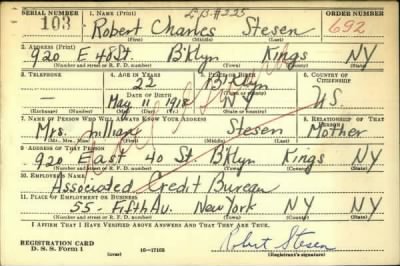 SERIAL NUMBER 1. NAME (Print) L.B. #225 ORDER NUMBER
103 Robert Charles Stesen 692
(First) (Middle) (Last)
2. ADDRESS (Print)
920 E 40 St B'klyn Kings NY
(Number and street or R. F. D. number) (Town) (County) (State)
3. TELEPHONE 4. AGE IN YEARS 5. PLACE OF BIRTH 6. COUNTRY OF CITIZENSHIP
— 22 B'klyn
DATE OF BIRTH (Town or county)
May 11 1918 NY U.S.
(Exchange) (Number) (Mo.) (Day) (Yr.) (State or country)
7. NAME OF PERSON WHO WILL ALWAYS KNOW YOUR ADDRESS 8. RELATIONSHIP OF THAT PERSON
Mrs. Lillian Stesen Mother
(Mr., Mrs., Miss) (First) (Middle) (Last)
9. ADDRESS OF THAT PERSON
920 East 40 St B'klyn Kings NY
(Number and street or R. F. D. number) (Town) (County) (State)
10. EMPLOYER'S NAME
Associated Credit Bureau
11. PLACE OF EMPLOYMENT OR BUSINESS
55 - Fifth Av. New York NY NY
(Number and street or R. F. D. number) (Town) (County) (State)
I AFFIRM THAT I HAVE VERIFIED ABOVE ANSWERS AND THAT THEY ARE TRUE.
REGISTRATION CARD
D. S. S. Form 1 16—17105 Robert Stesen
(Registrant's signature)